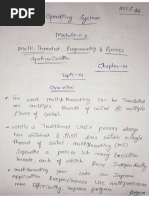 Operating Systems
Module-03
Multi-Threaded Programming & Process
Synchronization
Chapter-01
Topic-01
Overview
In word multithreading can be translated
as multiple threads of control or multiple
flows of control.
While a traditional UNIX process always
has contained & still does contain a single
thread of control, Multithreading (MT)
separates a process into many execution
threads, each of which runs independently
Multithreading your code can
Improve application Responsiveness
Use multiprocessors
more efficiently, Improve program